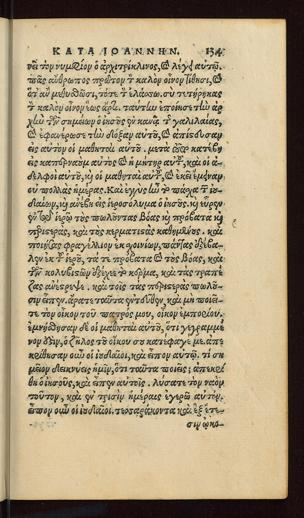 ΚΑΤΑ ΙΟΑΝΝΗΝ. 134
νεῖ τὸν νυμφίον ὁ ἀρχιτρίκλινος, καὶ λέγει αὐτῷ.
πᾶς ἄνθρωπος πρῶτον τὸν καλὸν οἶνον τίθησι, καὶ
ὅταν μεθυσθῶσι, τότε τὸν ἐλάσσω. σὺ τετήρηκας
τὸν καλὸν οἶνον ἕως ἄρτι. ταύτην ἐποίησε τὴν ἀρ
χὴν τῶν σημείων ὁ ἰησοῦς ἐν κανᾷ τῆς γαλιλαίας,
καὶ ἐφανέρωσε τὴν δόξαν αὐτοῦ, καὶ ἐπίστευσαν
εἰς αὐτὸν οἱ μαθηταὶ αὐτοῦ. μετὰ τοῦτο κατέβη
εἰς καπερναοὺμ αὐτὸς καὶ ἡ μήτηρ αὐτοῦ, καὶ οἱ ἀ
δελφοὶ αὐτοῦ, καὶ οἱ μαθηταὶ αὐτοῦ, καὶ ἐκεῖ ἔμειναν
οὐ πολλὰς ἡμέρας. Καὶ ἐγγὺς ἦν τὸ πάσχα τῶν ἰου
δαίων, καὶ ἀνέβη εἰς ἱεροσόλυμα ὁ ἰησοῦς. καὶ εὗρεν
ἐν τῷ ἱερῷ τοὺς πωλοῦντας βόας καὶ πρόβατα καὶ
περιστεράς, καὶ τοὺς κερματιστὰς καθημένους. καὶ
ποιήσας φραγέλλιον ἐκ σχοινίων, πάντας ἐξέβα
λεν ἐκ τοῦ ἱεροῦ, τά τε πρόβατα καὶ τοὺς βόας, καὶ
τῶν κολυβιστῶν ἐξέχεε τὸ κέρμα, καὶ τὰς τραπέ
ζας ἀνέστρεψε. καὶ τοῖς τὰς περιστερὰς πωλοῦ-
σιν εἶπεν. ἄρατε ταῦτα ἐντεῦθεν, καὶ μὴ ποιεῖ-
τε τὸν οἶκον τοῦ πατρός μου, οἶκον ἐμπορίου.
ἐμνήσθησαν δὲ οἱ μαθηταὶ αὐτοῦ, ὅτι γεγραμμέ
νον ἐστίν, ὁ ζῆλος τοῦ οἴκου σου κατέφαγέ με. ἀπε
κρίθησαν οὖν οἱ ἰουδαῖοι, καὶ εἶπον αὐτῷ. τί ση
μεῖον δεικνύεις ἡμῖν, ὅτι ταῦτα ποιεῖς; ἀπεκρί
θη ὁ ἰησοῦς, καὶ εἶπεν αὐτοῖς. λύσατε τὸν ναὸν
τοῦτον, καὶ ἐν τρισὶν ἡμέραις ἐγερῶ αὐτόν.
εἶπον οὖν οἱ ἰουδαῖοι. τεσσαράκοντα καὶ ἓξ ἔτε-
σιν ᾠκο-